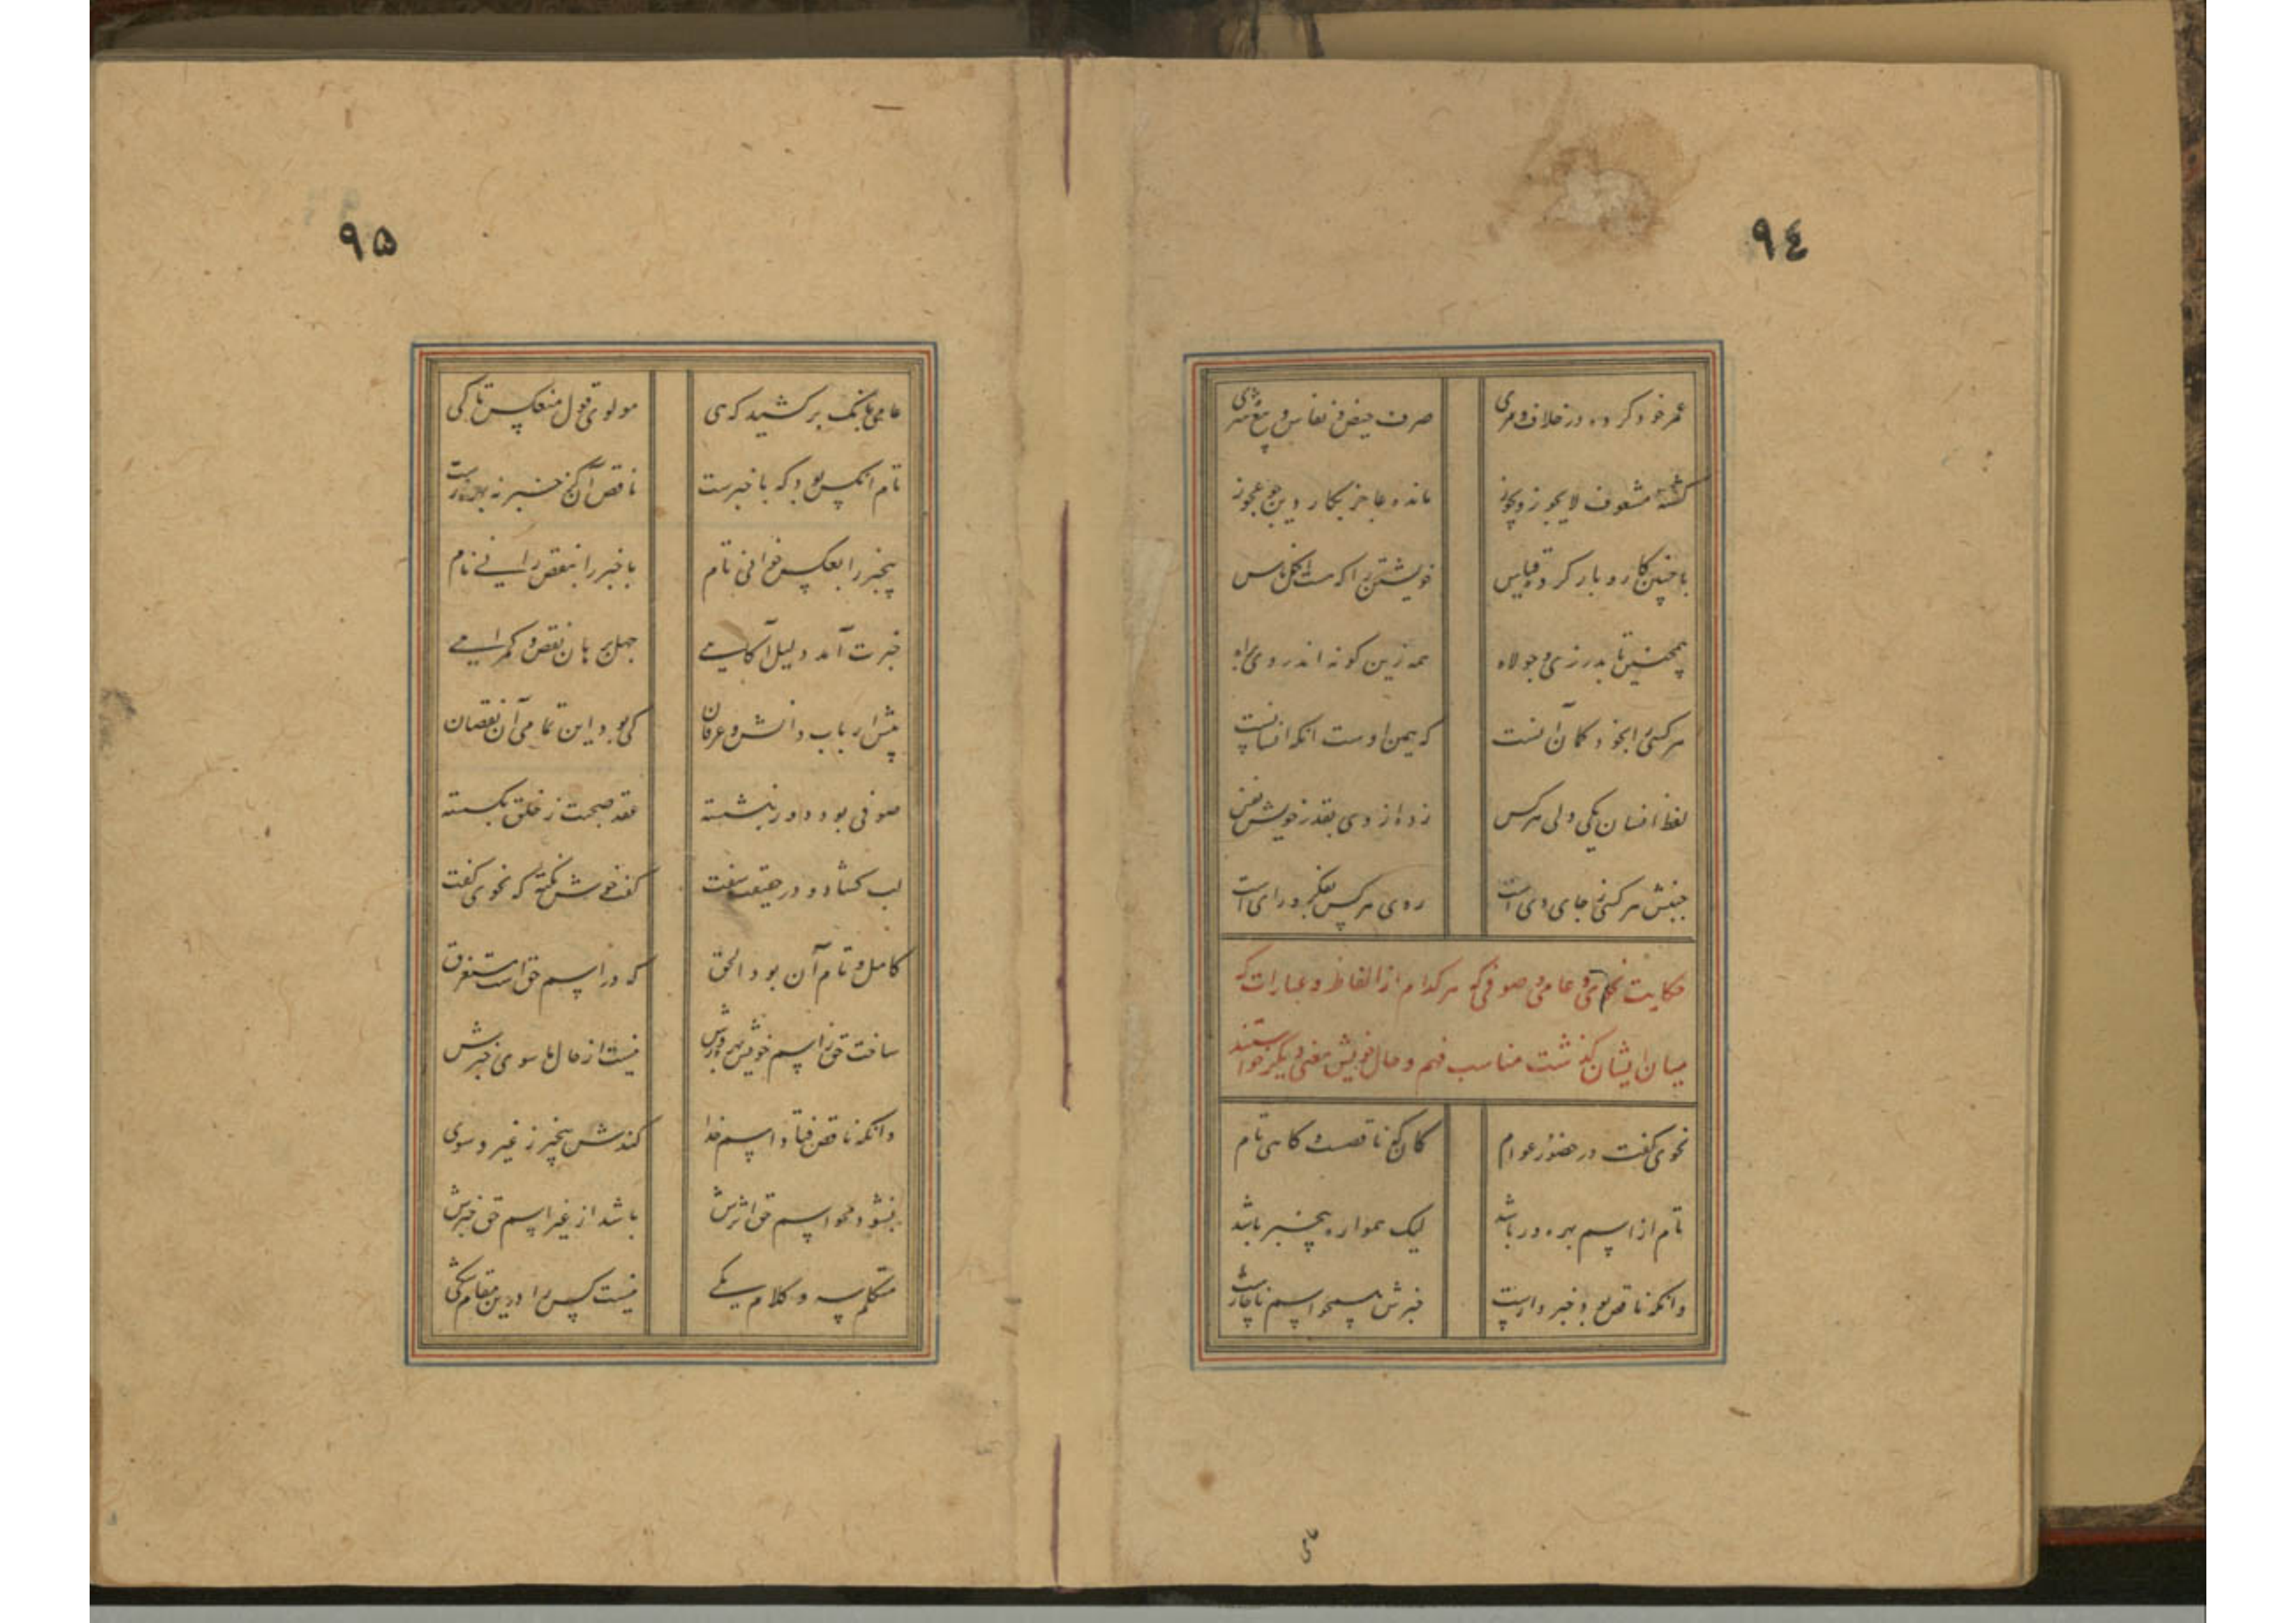 ۹٤
عمر خود کرده در خلاف و مری
صرف حیض و نفاس و بیع و شری
گشته مشعوف لایجوز و یجوز
مانده عاجز بکار دین چو عجوز
با چنین کار و بار کرده قیاس
خویشتن را که هست اکمل ناس
همچنین تا بدرزی و جولاه
همه زین گونه اند روی براه
هر کسی را بخود گمان آنست
که همین اوست آنکه انسانست
لفظ انسان یکی ولی هر کس
زده از وی بقدر خویش نفس
جنبش هر کسی ز جای وی است
روی هر کس بفکر و رای وی است
حکایت نحوی و عامی و صوفی که هر کدام از الفاظ و عبارات که
میان ایشان گذشت مناسب فهم و حال خویش معنی دیگر خواستند
نحوی گفت در حضور عوام
کان گهی ناقصست و گاهی تام
تام از اسم بهره ور باشد
لیک همواره بیخبر باشد
وانکه ناقص بود خبردارست
خبرش همچو اسم ناچارست
عامی
۹۵
عامی بانگ برکشید که هی
مولوی قول منعکس تا کی
تام آنکس بود که با خبرست
ناقص آن کز خبر نه بهره ورست
بیخبر را بعکس خوانی تام
با خبر را بنقص رانی نام
خبرت آمد دلیل آگاهی
جهل برهان نقص و گمراهی
پیش ارباب دانش و عرفان
کی بود این تمامی آن نقصان
صوفی بود دور بنشسته
عقد صحبت ز خلق بگسسته
لب گشاد و در حقیقت سفت
گفت خوش نکته که نحوی گفت
کامل و تام آن بود الحق
که در اسم حق است مستغرق
ساخت حق ز اسم خویش بهره ورش
نیست از حال ماسوی خبرش
وانکه ناقص فتاد اسم خدا
کندش بیخبر ز غیر و سوی
نشود محو اسم حق اثرش
باشد از غیر اسم حق خبرش
متکلم سه و کلام یکی
نیست کس را درین مقام شکی